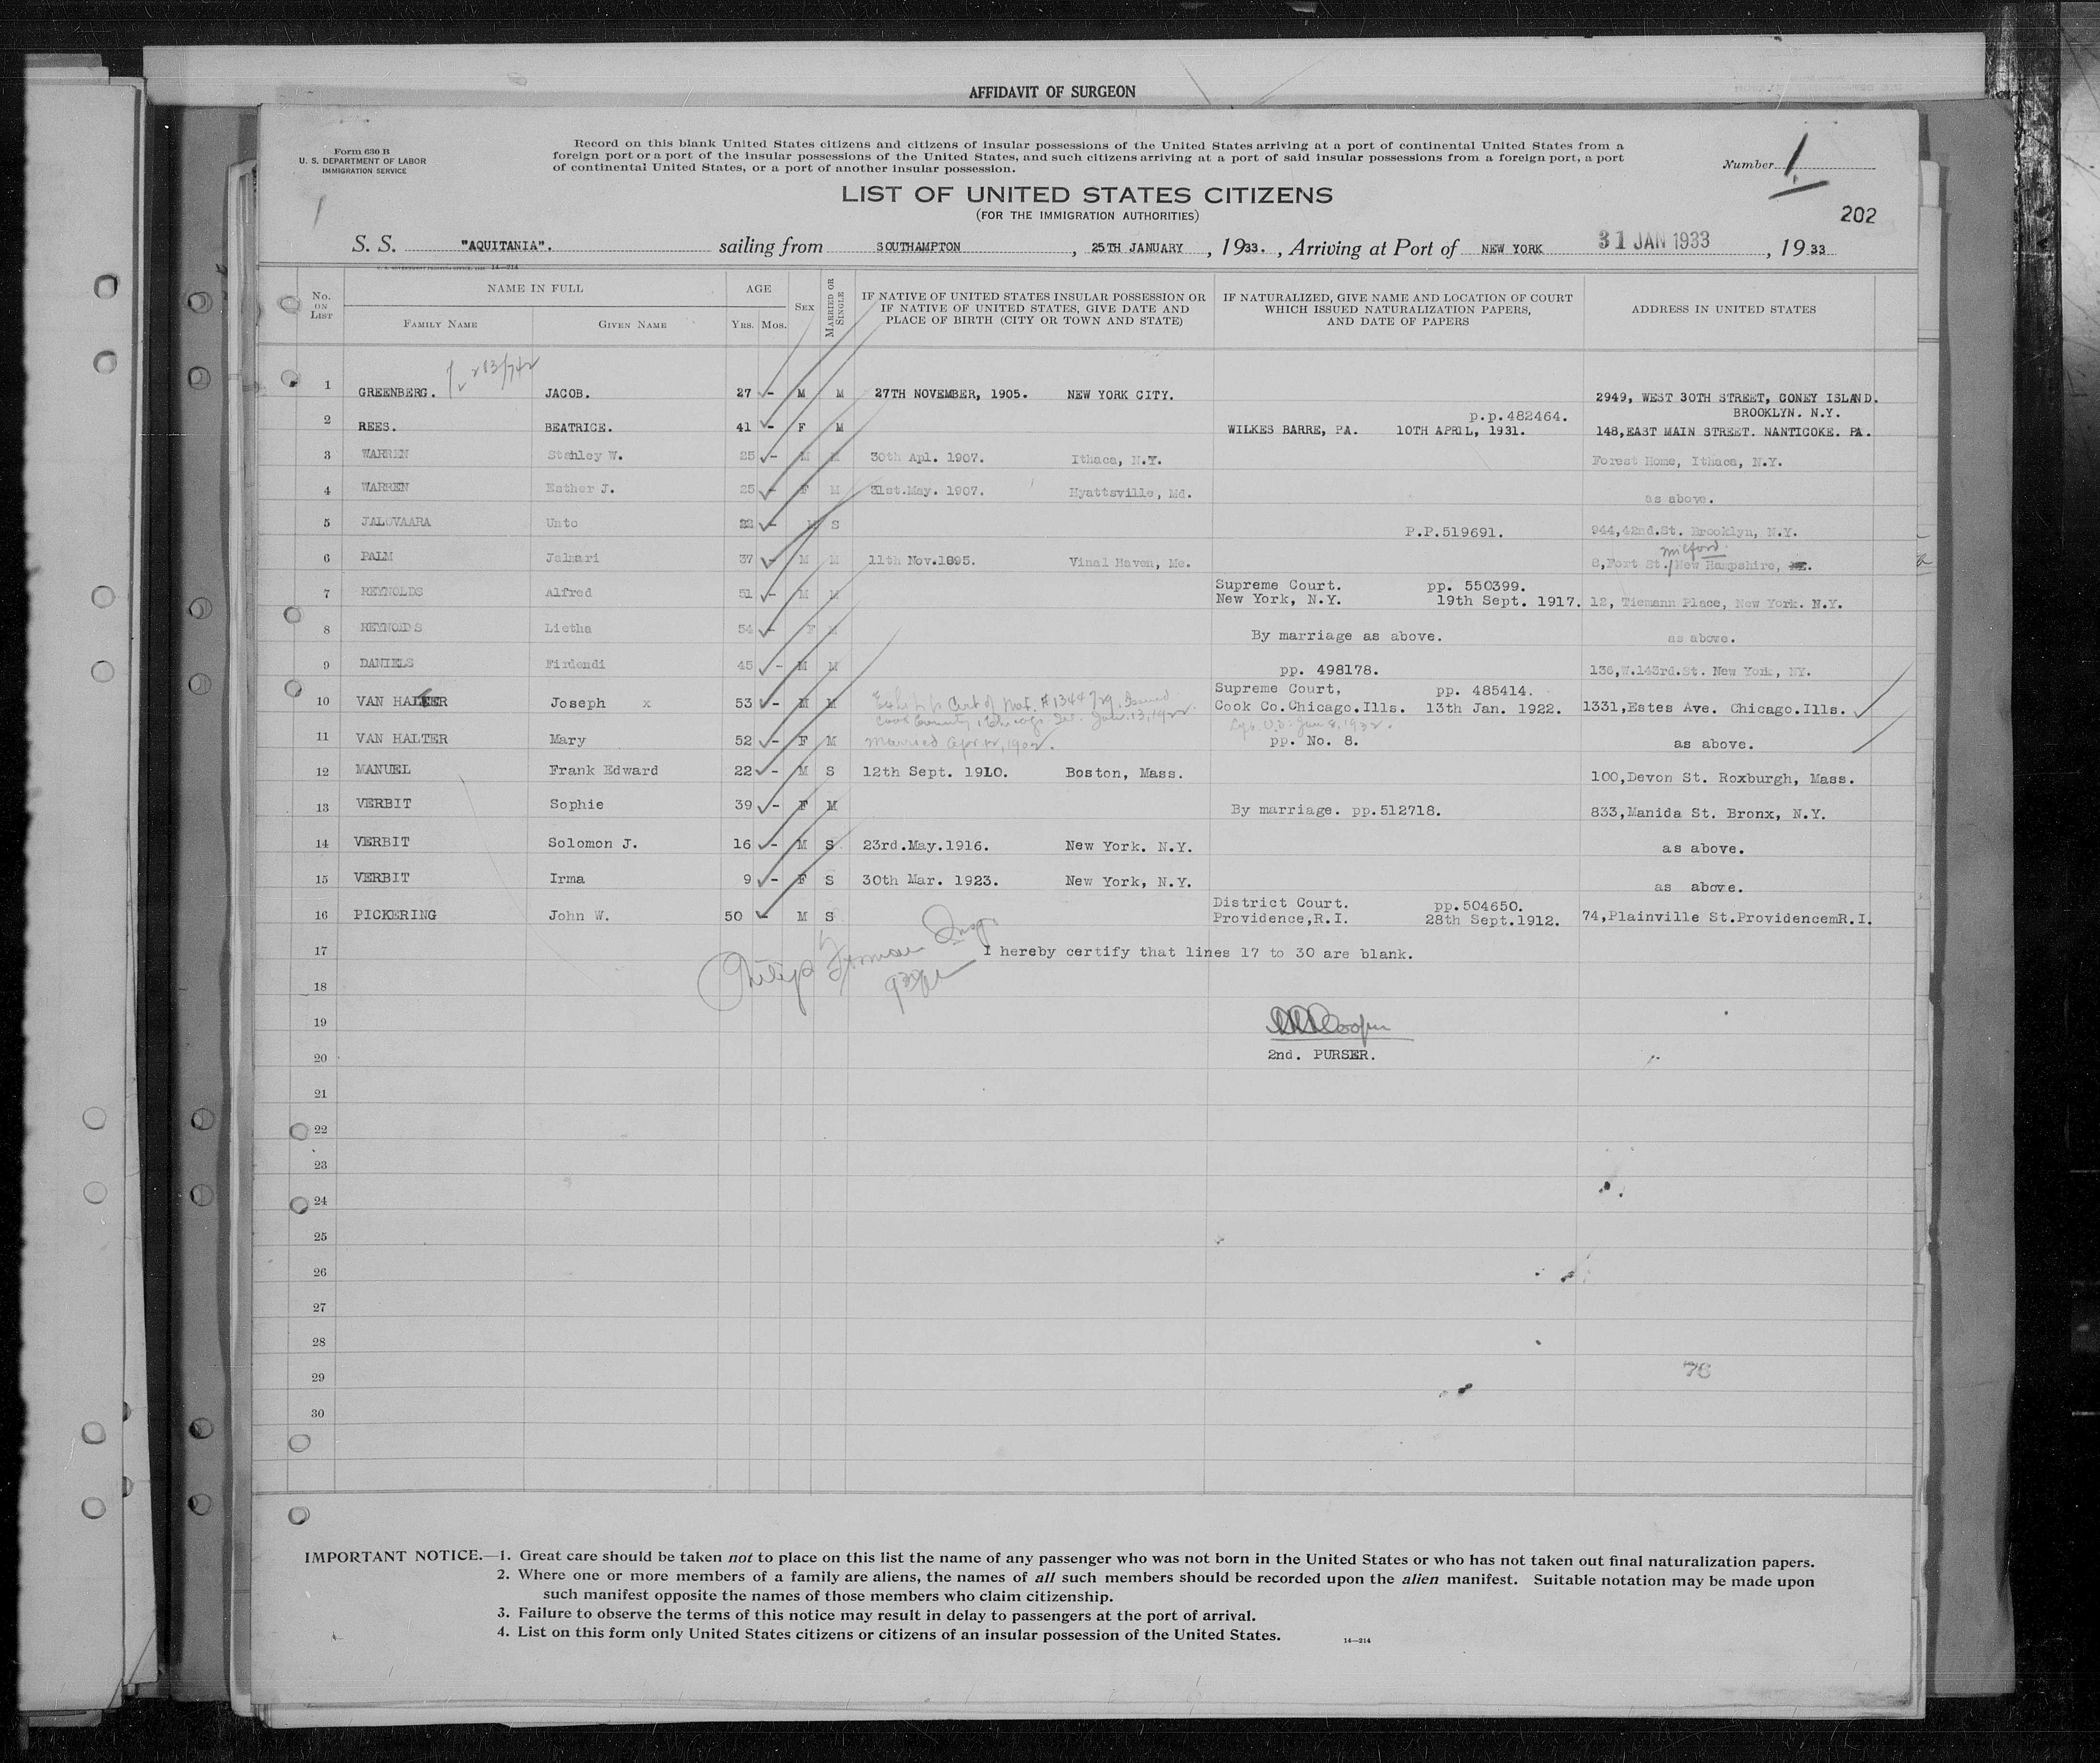 AFFIDAVIT OF SURGEON
Form 630 B
U. S. DEPARTMENT OF LABOR
IMMIGRATION SERVICE
Record on this blank United States citizens and citizens of insular possessions of the United States arriving at a port of continental United States from a
foreign port or a port of the insular possessions of the United States, and such citizens arriving at a port of said insular possessions from a foreign port, a port
of continental United States, or a port of another insular possession.
Number 1
LIST OF UNITED STATES CITIZENS
(FOR THE IMMIGRATION AUTHORITIES)
202
S. S. "AQUITANIA". sailing from SOUTHAMPTON, 25TH JANUARY, 1933., Arriving at Port of NEW YORK 31 JAN 1933, 1933
14—214
No. ON LIST NAME IN FULL AGE SEX MARRIED OR SINGLE IF NATIVE OF UNITED STATES INSULAR POSSESSION OR IF NATIVE OF UNITED STATES, GIVE DATE AND PLACE OF BIRTH (CITY OR TOWN AND STATE) IF NATURALIZED, GIVE NAME AND LOCATION OF COURT WHICH ISSUED NATURALIZATION PAPERS, AND DATE OF PAPERS ADDRESS IN UNITED STATES
FAMILY NAME GIVEN NAME YRS. MOS.
1 GREENBERG. JACOB. 27 - M M 27TH NOVEMBER, 1905. NEW YORK CITY. 2949, WEST 30TH STREET, CONEY ISLAND.
BROOKLYN. N.Y.
p.p.482464.
2 REES. BEATRICE. 41 - F M WILKES BARRE, PA. 10TH APRIL, 1931. 148,EAST MAIN STREET. NANTICOKE. PA.
3 WARREN Stanley W. 25 - M M 30th Apl. 1907. Ithaca, N.Y. Forest Home, Ithaca, N.Y.
4 WARREN Esther J. 25 - F M 31st.May. 1907. Hyattsville, Md. as above.
5 JALOVAARA Unto 22 - M S P.P.519691. 944,42nd.St. Brooklyn, N.Y.
Milford
6 PALM Jalmari 37 - M M 11th Nov.1895. Vinal Haven, Me. 8,Fort St. New Hampshire,
Supreme Court. pp. 550399.
7 REYNOLDS Alfred 51 - M M New York, N.Y. 19th Sept. 1917. 12, Tiemann Place, New York. N.Y.
8 REYNOLDS Lietha 54 - F M By marriage as above. as above.
9 DANIELS Firdendi 45 - M M pp. 498178. 136,W.143rd.St. New York, NY.
Supreme Court, pp. 485414.
10 VAN HALTER Joseph x 53 - M M Cert of Nat. Issued Cook Co.Chicago.Ills. 13th Jan. 1922. 1331,Estes Ave. Chicago.Ills.
Cook County, Chicago Jan. 13, 1922.
11 VAN HALTER Mary 52 - F M Married Apr 12, 1902. pp. No. 8. as above.
12 MANUEL Frank Edward 22 - M S 12th Sept. 1910. Boston, Mass. 100,Devon St. Roxburgh, Mass.
13 VERBIT Sophie 39 - F M By marriage. pp.512718. 833,Manida St. Bronx, N.Y.
14 VERBIT Solomon J. 16 - M S 23rd.May.1916. New York. N.Y. as above.
15 VERBIT Irma 9 - F S 30th Mar. 1923. New York, N.Y. as above.
District Court. pp.504650.
16 PICKERING John W. 50 - M S Providence,R.I. 28th Sept.1912. 74,Plainville St.ProvidencemR.I.
17 I hereby certify that lines 17 to 30 are blank.
Philip Insp
18
19
20 2nd. PURSER.
21
22
23
24
25
26
27
28
29 76
30
IMPORTANT NOTICE.—1. Great care should be taken not to place on this list the name of any passenger who was not born in the United States or who has not taken out final naturalization papers.
2. Where one or more members of a family are aliens, the names of all such members should be recorded upon the alien manifest. Suitable notation may be made upon
such manifest opposite the names of those members who claim citizenship.
3. Failure to observe the terms of this notice may result in delay to passengers at the port of arrival.
4. List on this form only United States citizens or citizens of an insular possession of the United States. 14—214